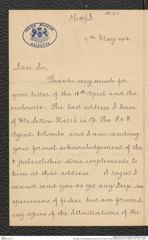 INDIAN MUSEUM
CALCUTTA
7th May 1902
Dear Sir,
Thanks very much for
your letter of the 16th April and the
enclosure. The last address I have
of Mr. is The P & O
Agent, Colombo, and I am sending
you formal acknowledgement of the
palaeolithic stone implements to
him at that address. I regret I
cannot send you as yet any Deep Sea
specimens of fishes, but am forward-
ing copies of the Illustrations of the